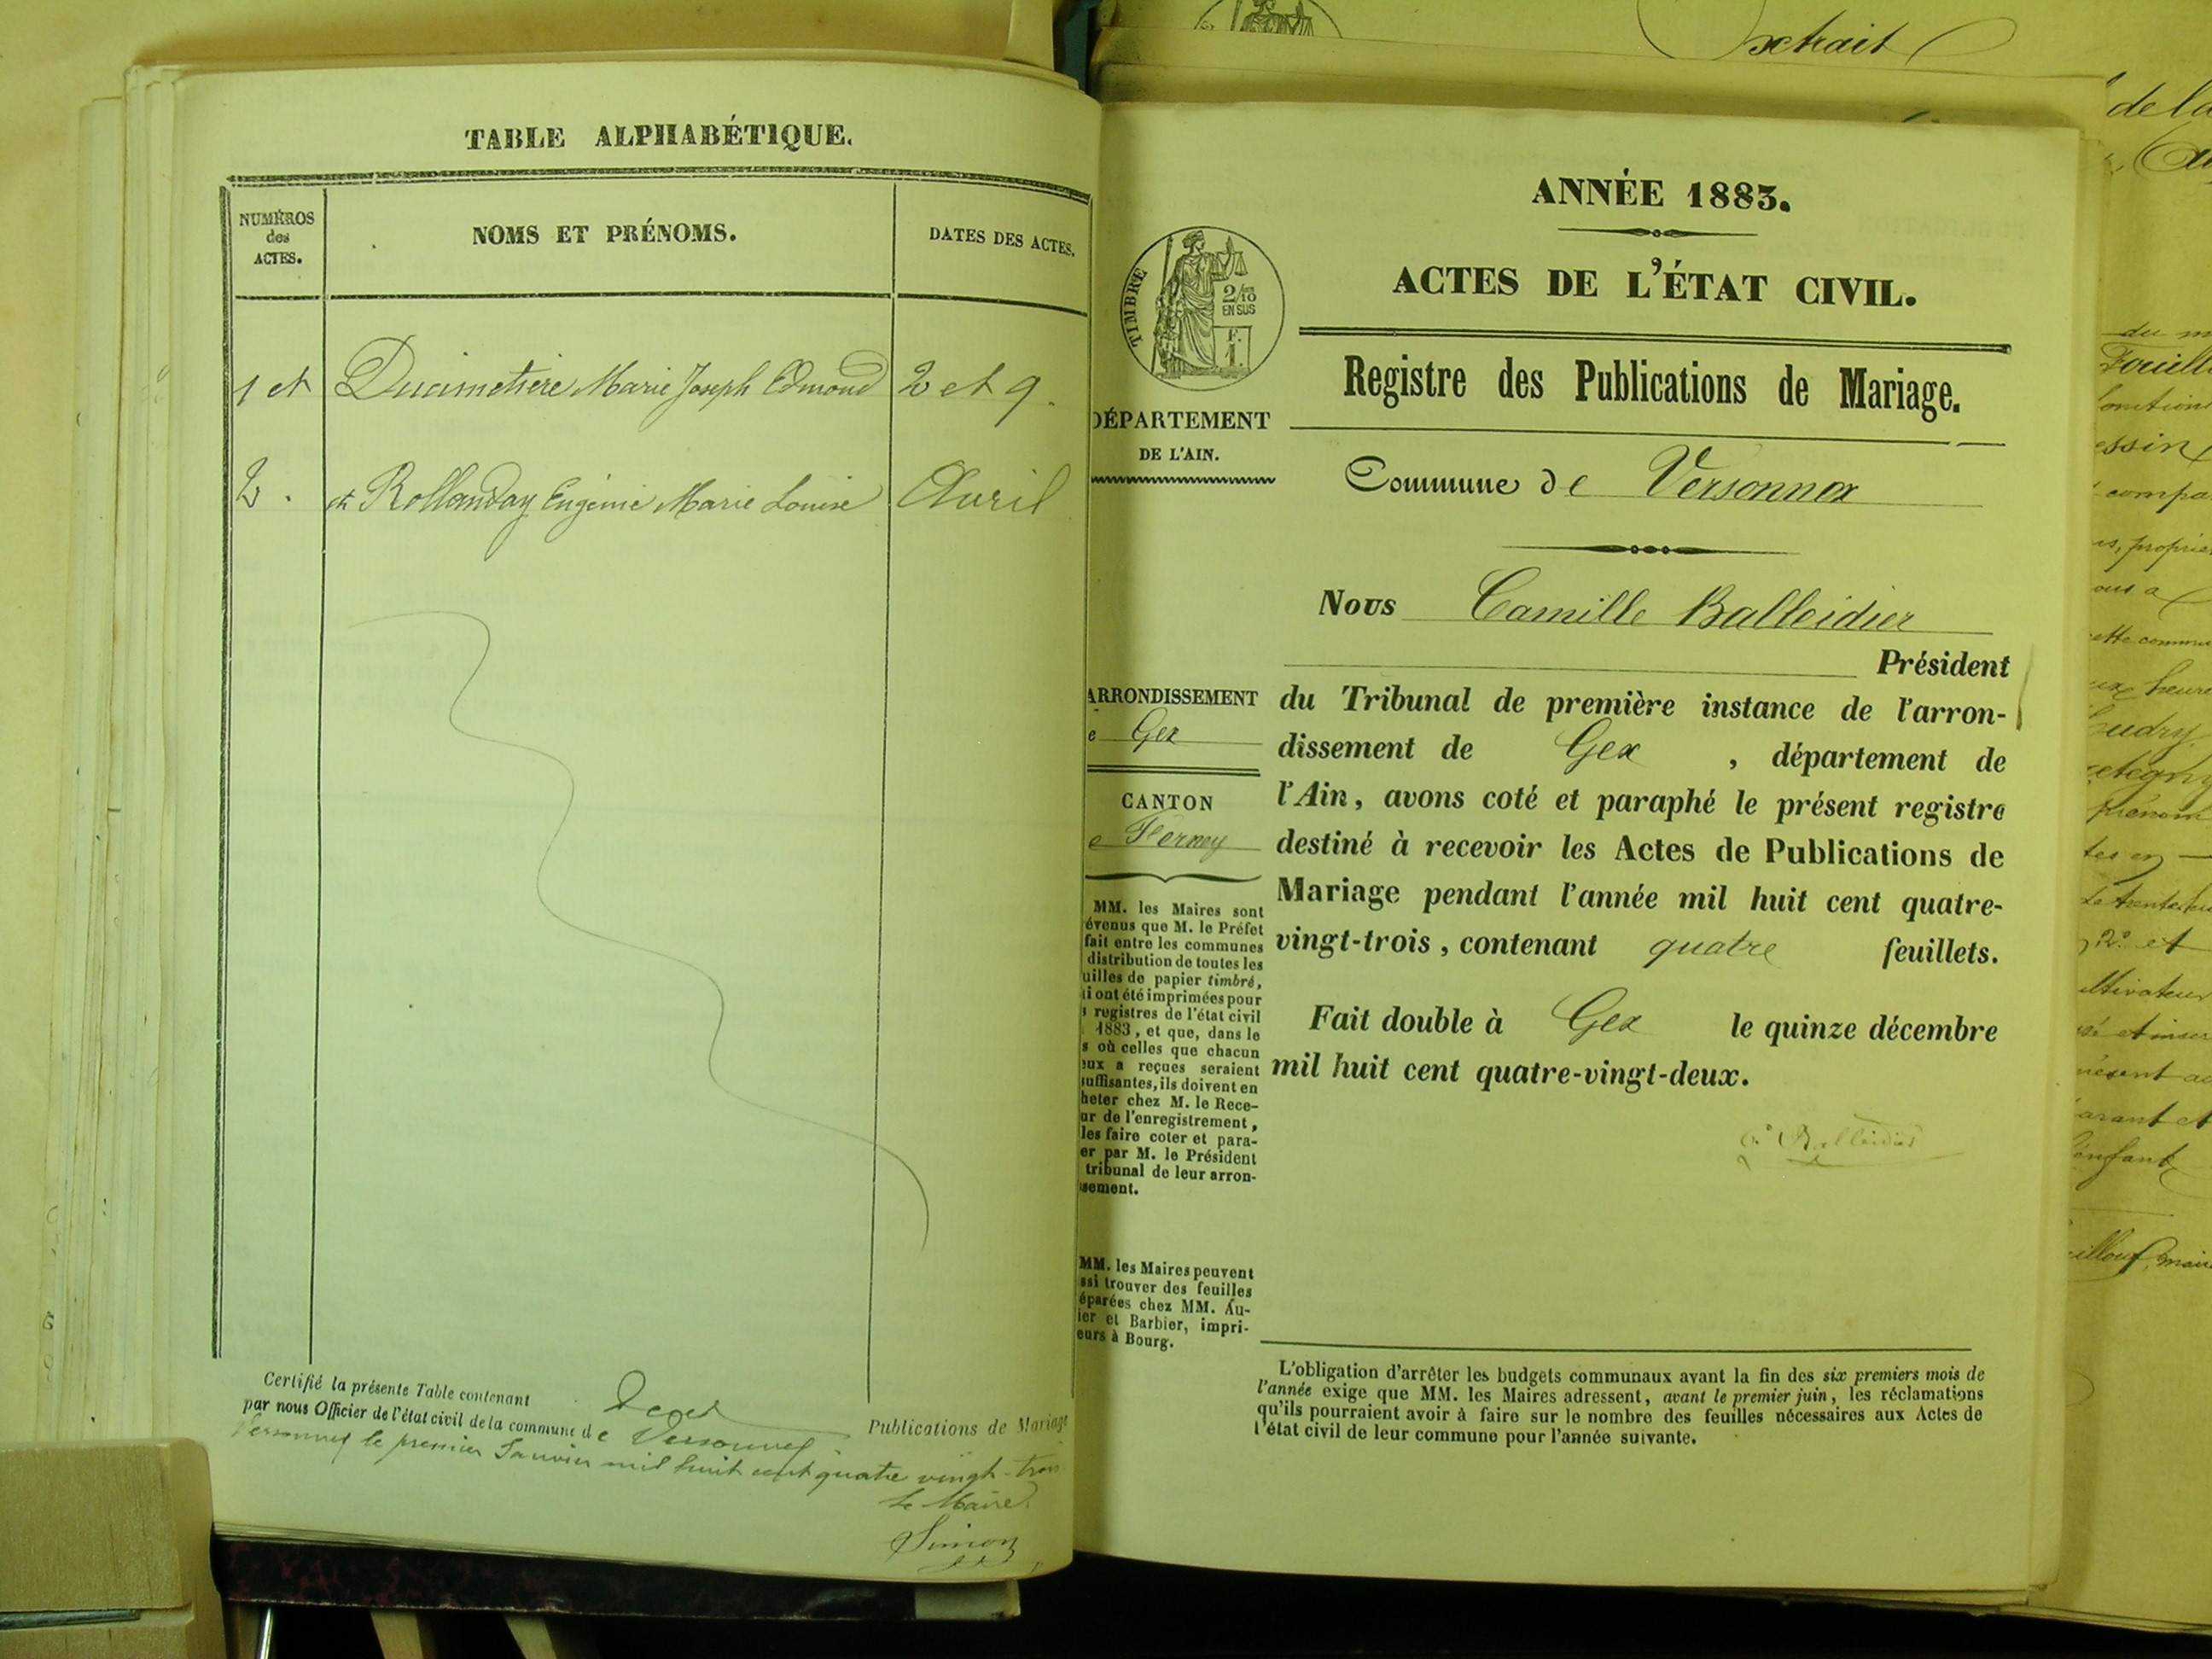 TABLE ALPHABÉTIQUE.
NUMÉROS
des
ACTES.
NOMS ET PRÉNOMS.
DATES DES ACTES.
1 et Ducimetière Marie Joseph Edmond 2 et 9.
2. et Rollanday Eugénie Marie Louise Avril
Certifié la présente Table contenant deux Publications de Mariage
par nous Officier de l'état civil de la commune de Versonnex
Versonnex le premier Janvier mil huit cent quatre vingt-trois
Le Maire
Simon
ANNÉE 1883.
ACTES DE L'ÉTAT CIVIL.
TIMBRE
2/10
EN SUS
F.
1.
DÉPARTEMENT
DE L'AIN.
Registre des Publications de Mariage.
Commune de Versonnex
Nous Camille Balleidier
Président
du Tribunal de première instance de l'arron-
dissement de Gex, département de
l'Ain, avons coté et paraphé le présent registre
destiné à recevoir les Actes de Publications de
Mariage pendant l'année mil huit cent quatre-
vingt-trois, contenant quatre feuillets.
Fait double à Gex le quinze décembre
mil huit cent quatre-vingt-deux.
Balleidier
ARRONDISSEMENT
e Gex
CANTON
e Ferney
MM. les Maires sont
évenus que M. le Préfet
fait entre les communes
distribution de toutes les
uilles de papier timbré,
i ont été imprimées pour
s registres de l'état civil
1883, et que, dans le
s où celles que chacun
eux a reçues seraient
suffisantes, ils doivent en
heter chez M. le Rece-
ur de l'enregistrement,
les faire coter et para-
er par M. le Président
tribunal de leur arron-
ssement.
MM. les Maires peuvent
ssi trouver des feuilles
éparées chez MM. Au-
ier et Barbier, impri-
eurs à Bourg.
L'obligation d'arrêter les budgets communaux avant la fin des six premiers mois de
l'année exige que MM. les Maires adressent, avant le premier juin, les réclamations
qu'ils pourraient avoir à faire sur le nombre des feuilles nécessaires aux Actes de
l'état civil de leur commune pour l'année suivante.
Extrait
de la
du m
essin
compa
is, proprié
ous a
cette commu
ux heure
prénom
tes en
2° et
ultivateur
sé et inser
présent ac
arant et
l'enfant